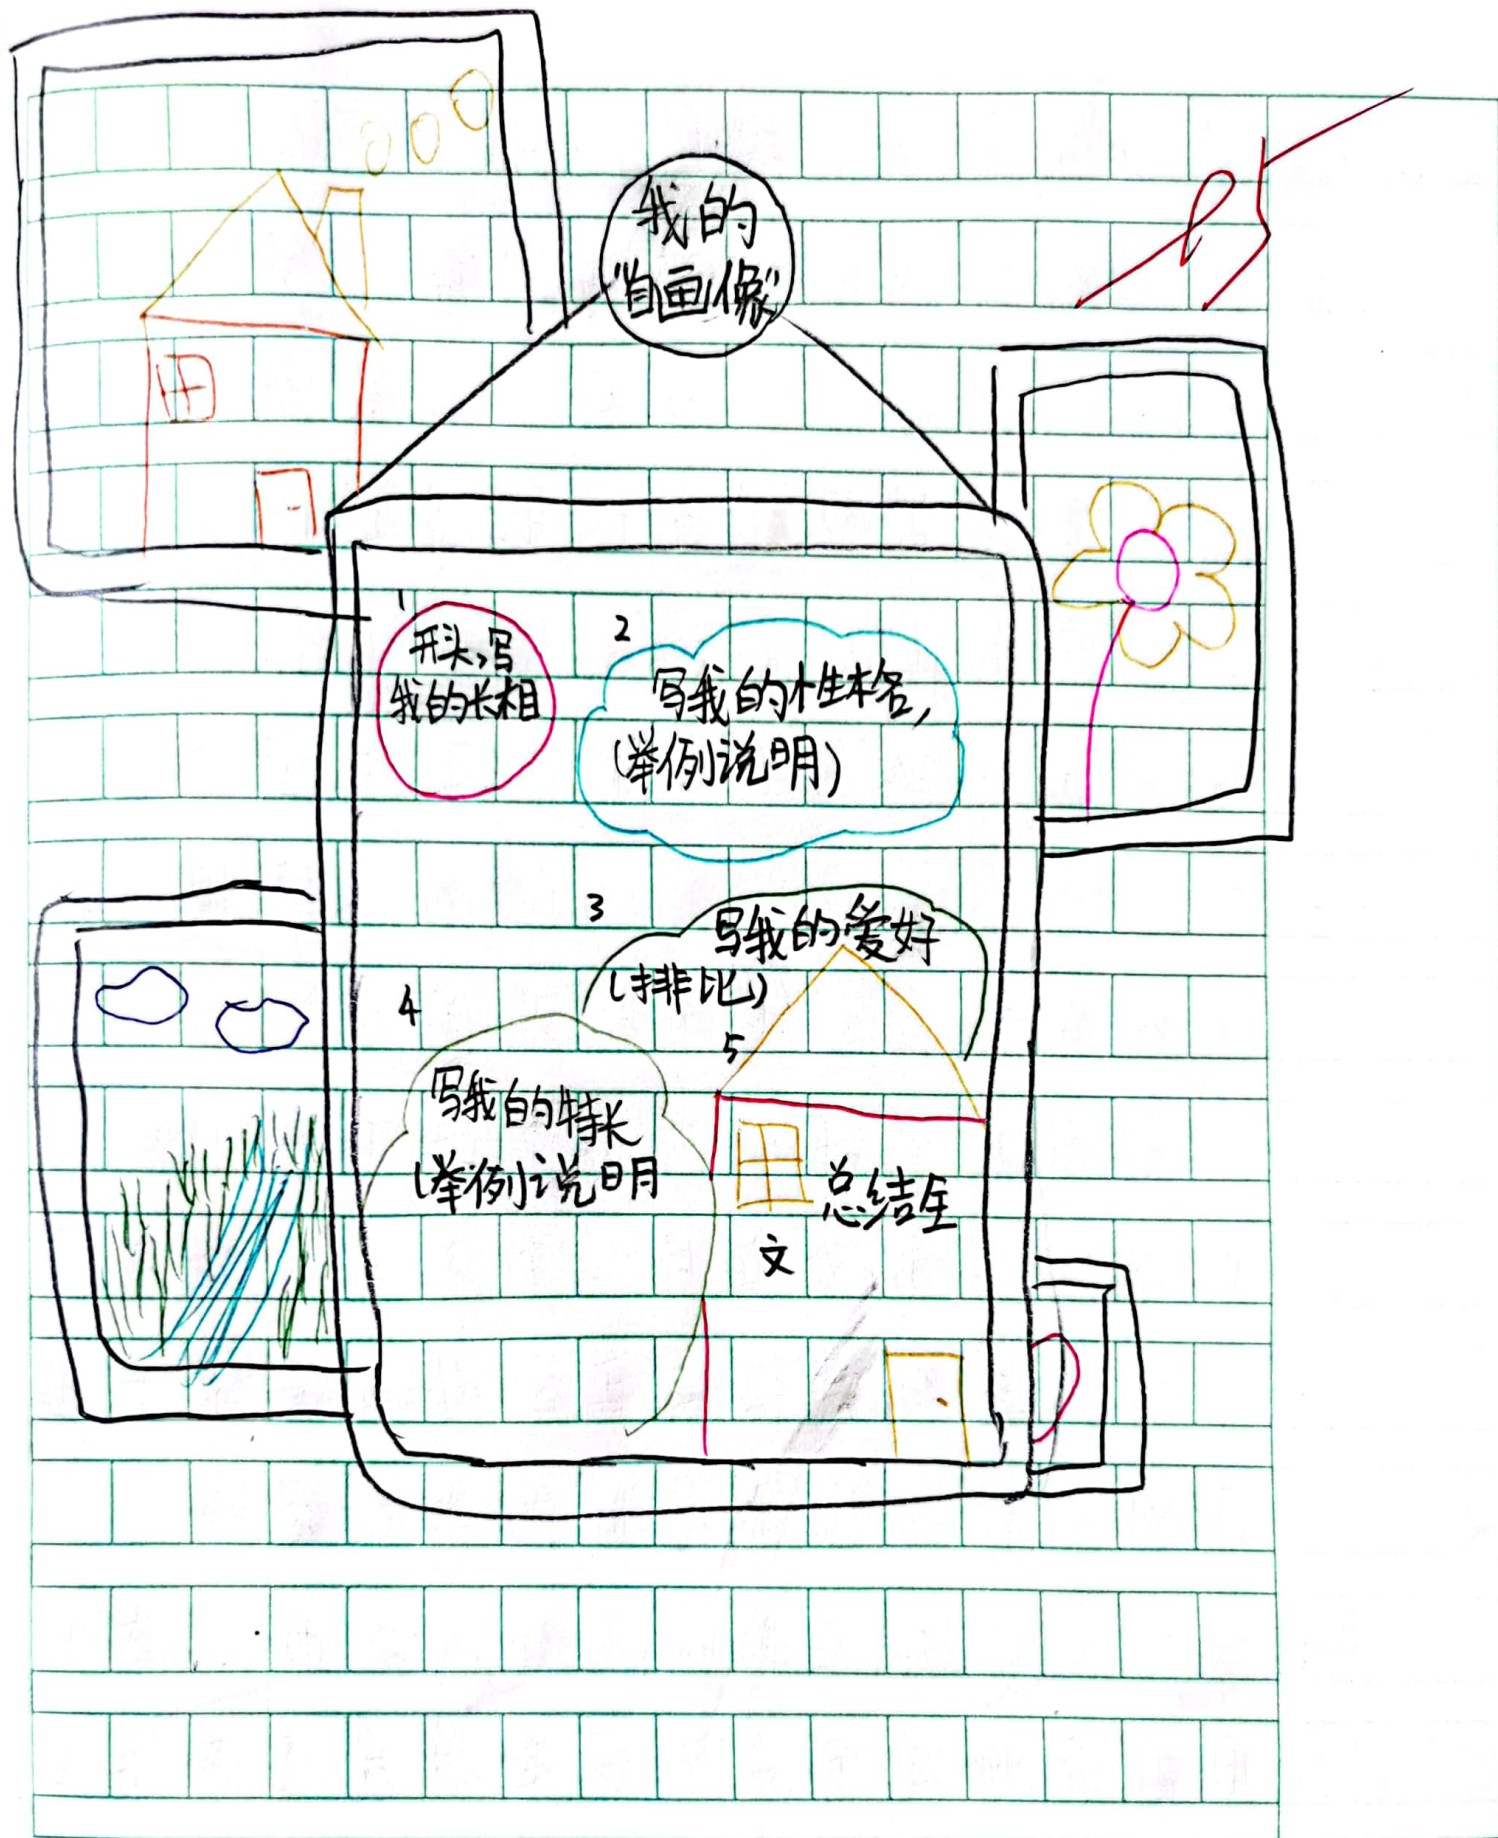 我的
“自画像”
1
开头,写
我的长相
2
写我的性格,
(举例说明)
3
写我的爱好
(排比)
4
写我的特长
(举例说明
5
总结全
文